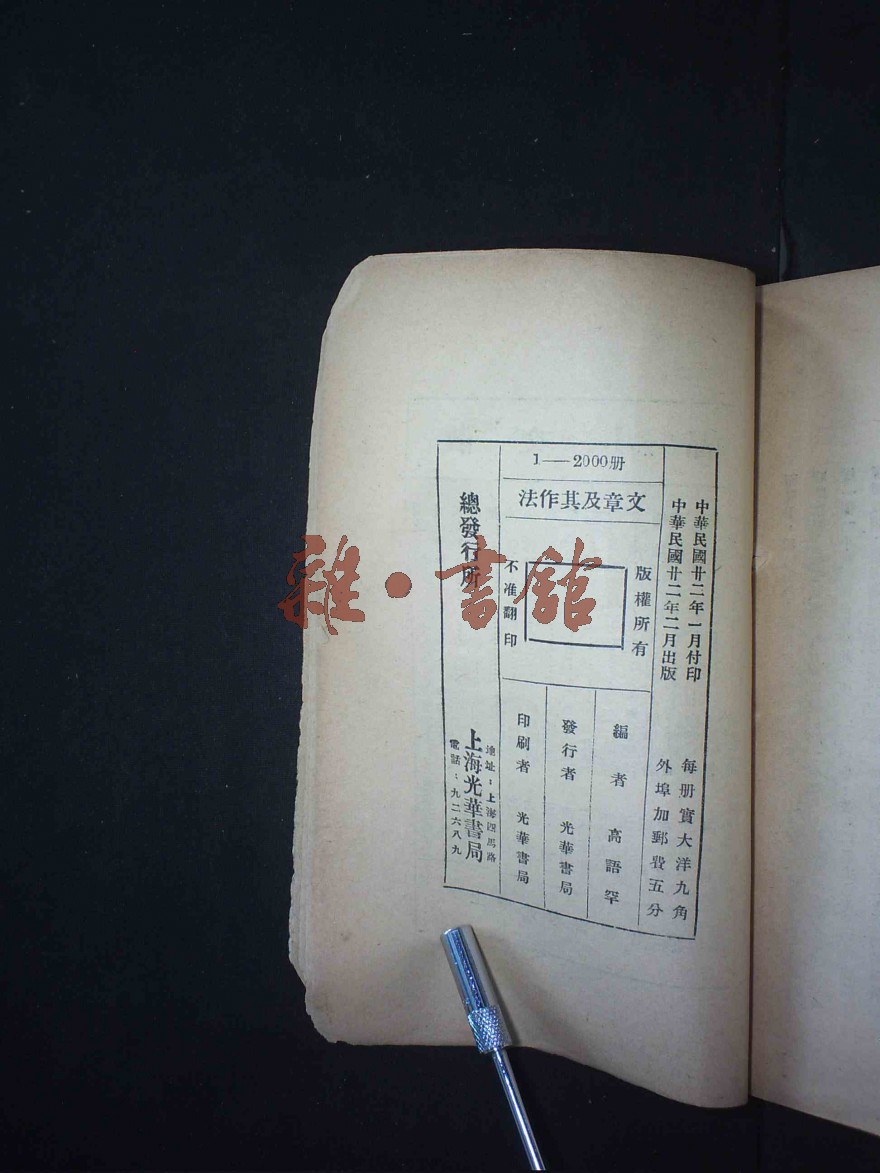 中華民國廿二年一月付印
中華民國廿二年二月出版
每册實大洋九角
外埠加郵費五分
1——2000册
文章及其作法
版權所有
不准翻印
編者 高語罕
發行者 光華書局
印刷者 光華書局
總發行所
地址：上海四馬路
上海光華書局
電話：九二六八九
雜·書館